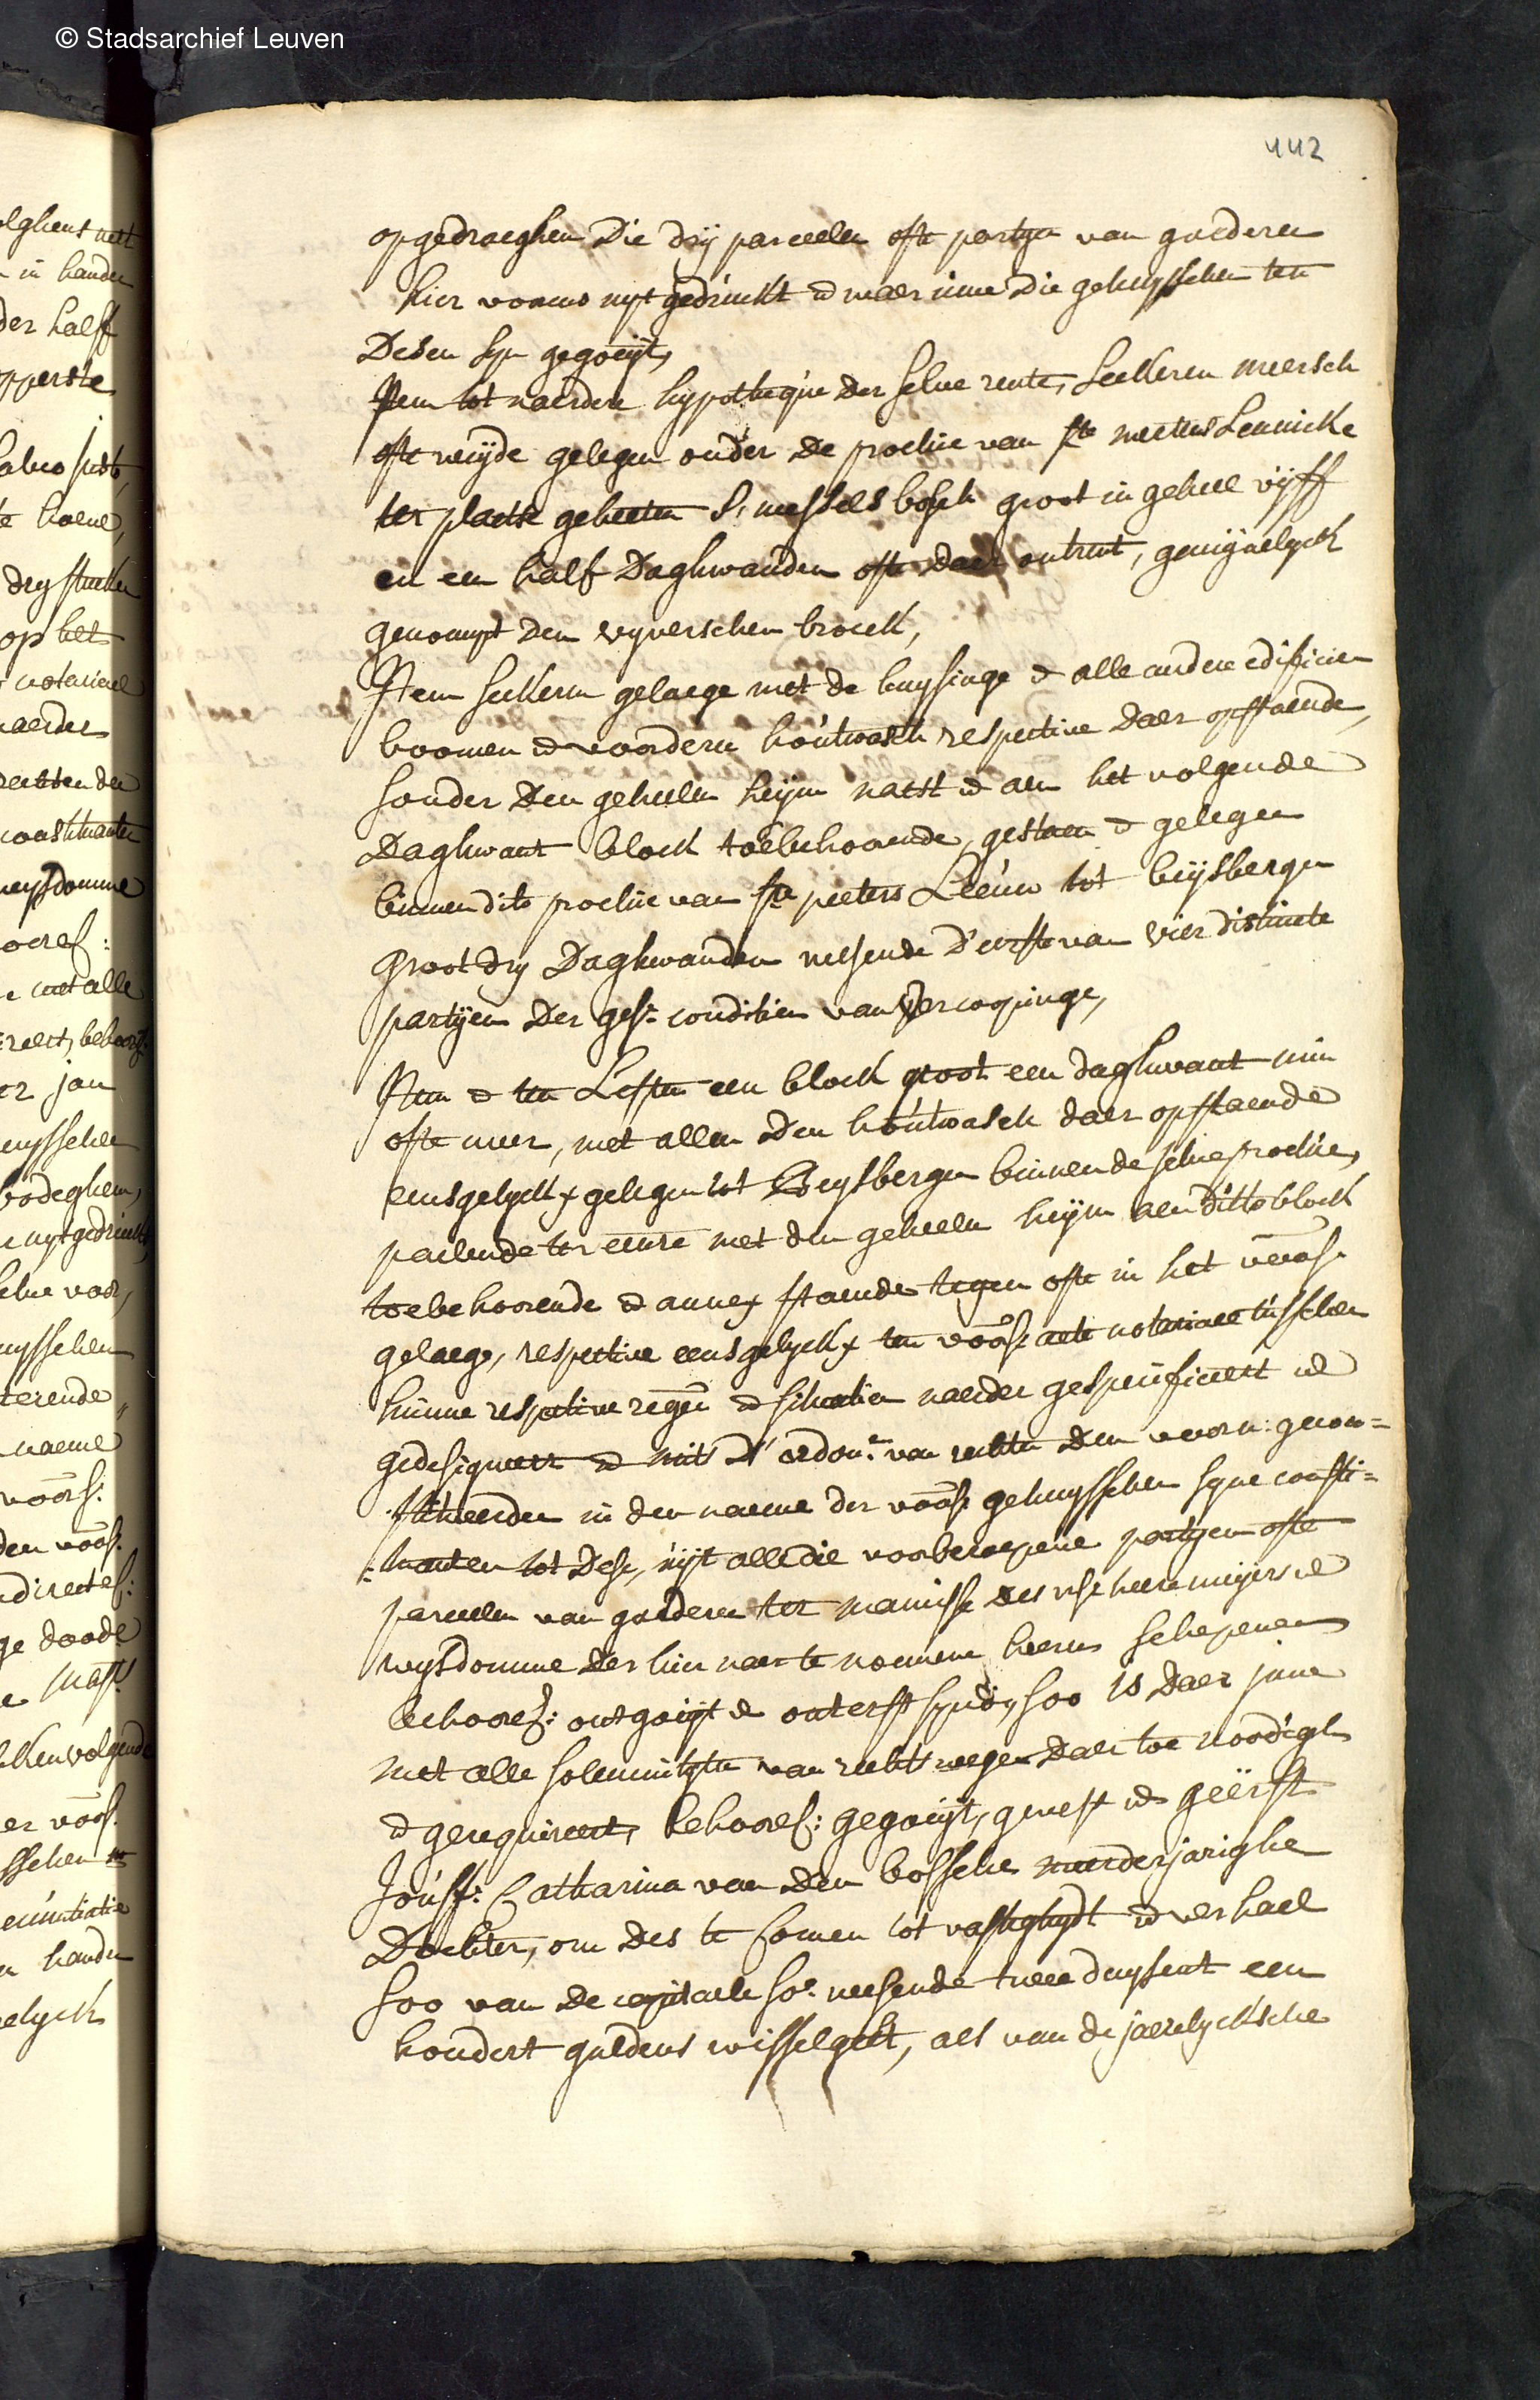 © Stadsarchief Leuven
442
opgedraeghen die drij parceelen ofte partyen van goederen
hier vorens uyt gedruckt & waer inne die gehuysschen ten
desen syn gegoeyt,
Item tot naerdere hypotheque der selve rente, seekeren meersch
ofte weyde gelegen onder de prochie van ste meertens Lennicke
ter plaetse geheeten S: messels bosch groot in geheel vyff
en een half daghwanden ofte daer ontrent, gemeynelyck
genoempt den vyverschen broeck,
Item seekeren gelaege met de huysinge & alle andere edificien
boomen & voordere houtwasch respective daer opstaende,
sonder den geheelen heym naest & aen het volgende
daghwant block toebehoorende, gestaen & gelegen
binnen dito prochie van ste peeters Leeuw tot beysbergen
groot dry daghwanden wesende d'eerste van vier distincte
partyen der gesc: conditien van vercoopinge,
Item & ten Lesten een block groot een daghwant min
ofte meer, met allen den houtwasch daer opstaende
eensgelyckx gelegen tot Beysbergen binnen de selve prochie,
paelende ter eenre met den geheelen heym aen ditto block
toebehoorende & annex staende tegen ofte in het voors:
gelaege, respective eensgelyckx ten voors: acte notariael tusschen
hunne respective regen: & situatien naerder gespecificeert &
gedesigneert & mits d'ordon: van rechte den voorn: gecon=
stitueerden in den naeme der voors: gehuysschen syne consti=
:tuanten tot dese, uyt alle die voorberoepene partyen ofte
parceelen van goederen ter manisse des vsc: heere meijers &
wysdomme der hier naer te noemene heeren schepenen
behoorel: ontgoeyt & onterft synde, soo is daer inne
met alle solemnityten van rechts wegen daer toe noodigh
& gerequireert, behoorel: gegoeyt, gevest & geërft
Jouff: Catharina van den bossche meerderjarighe
dochter, om des te comen tot vastigheydt & verhael
soo van de capitaele so: wesende twee duysent een
hondert guldens wisselgelt, als van de jaerelycksche